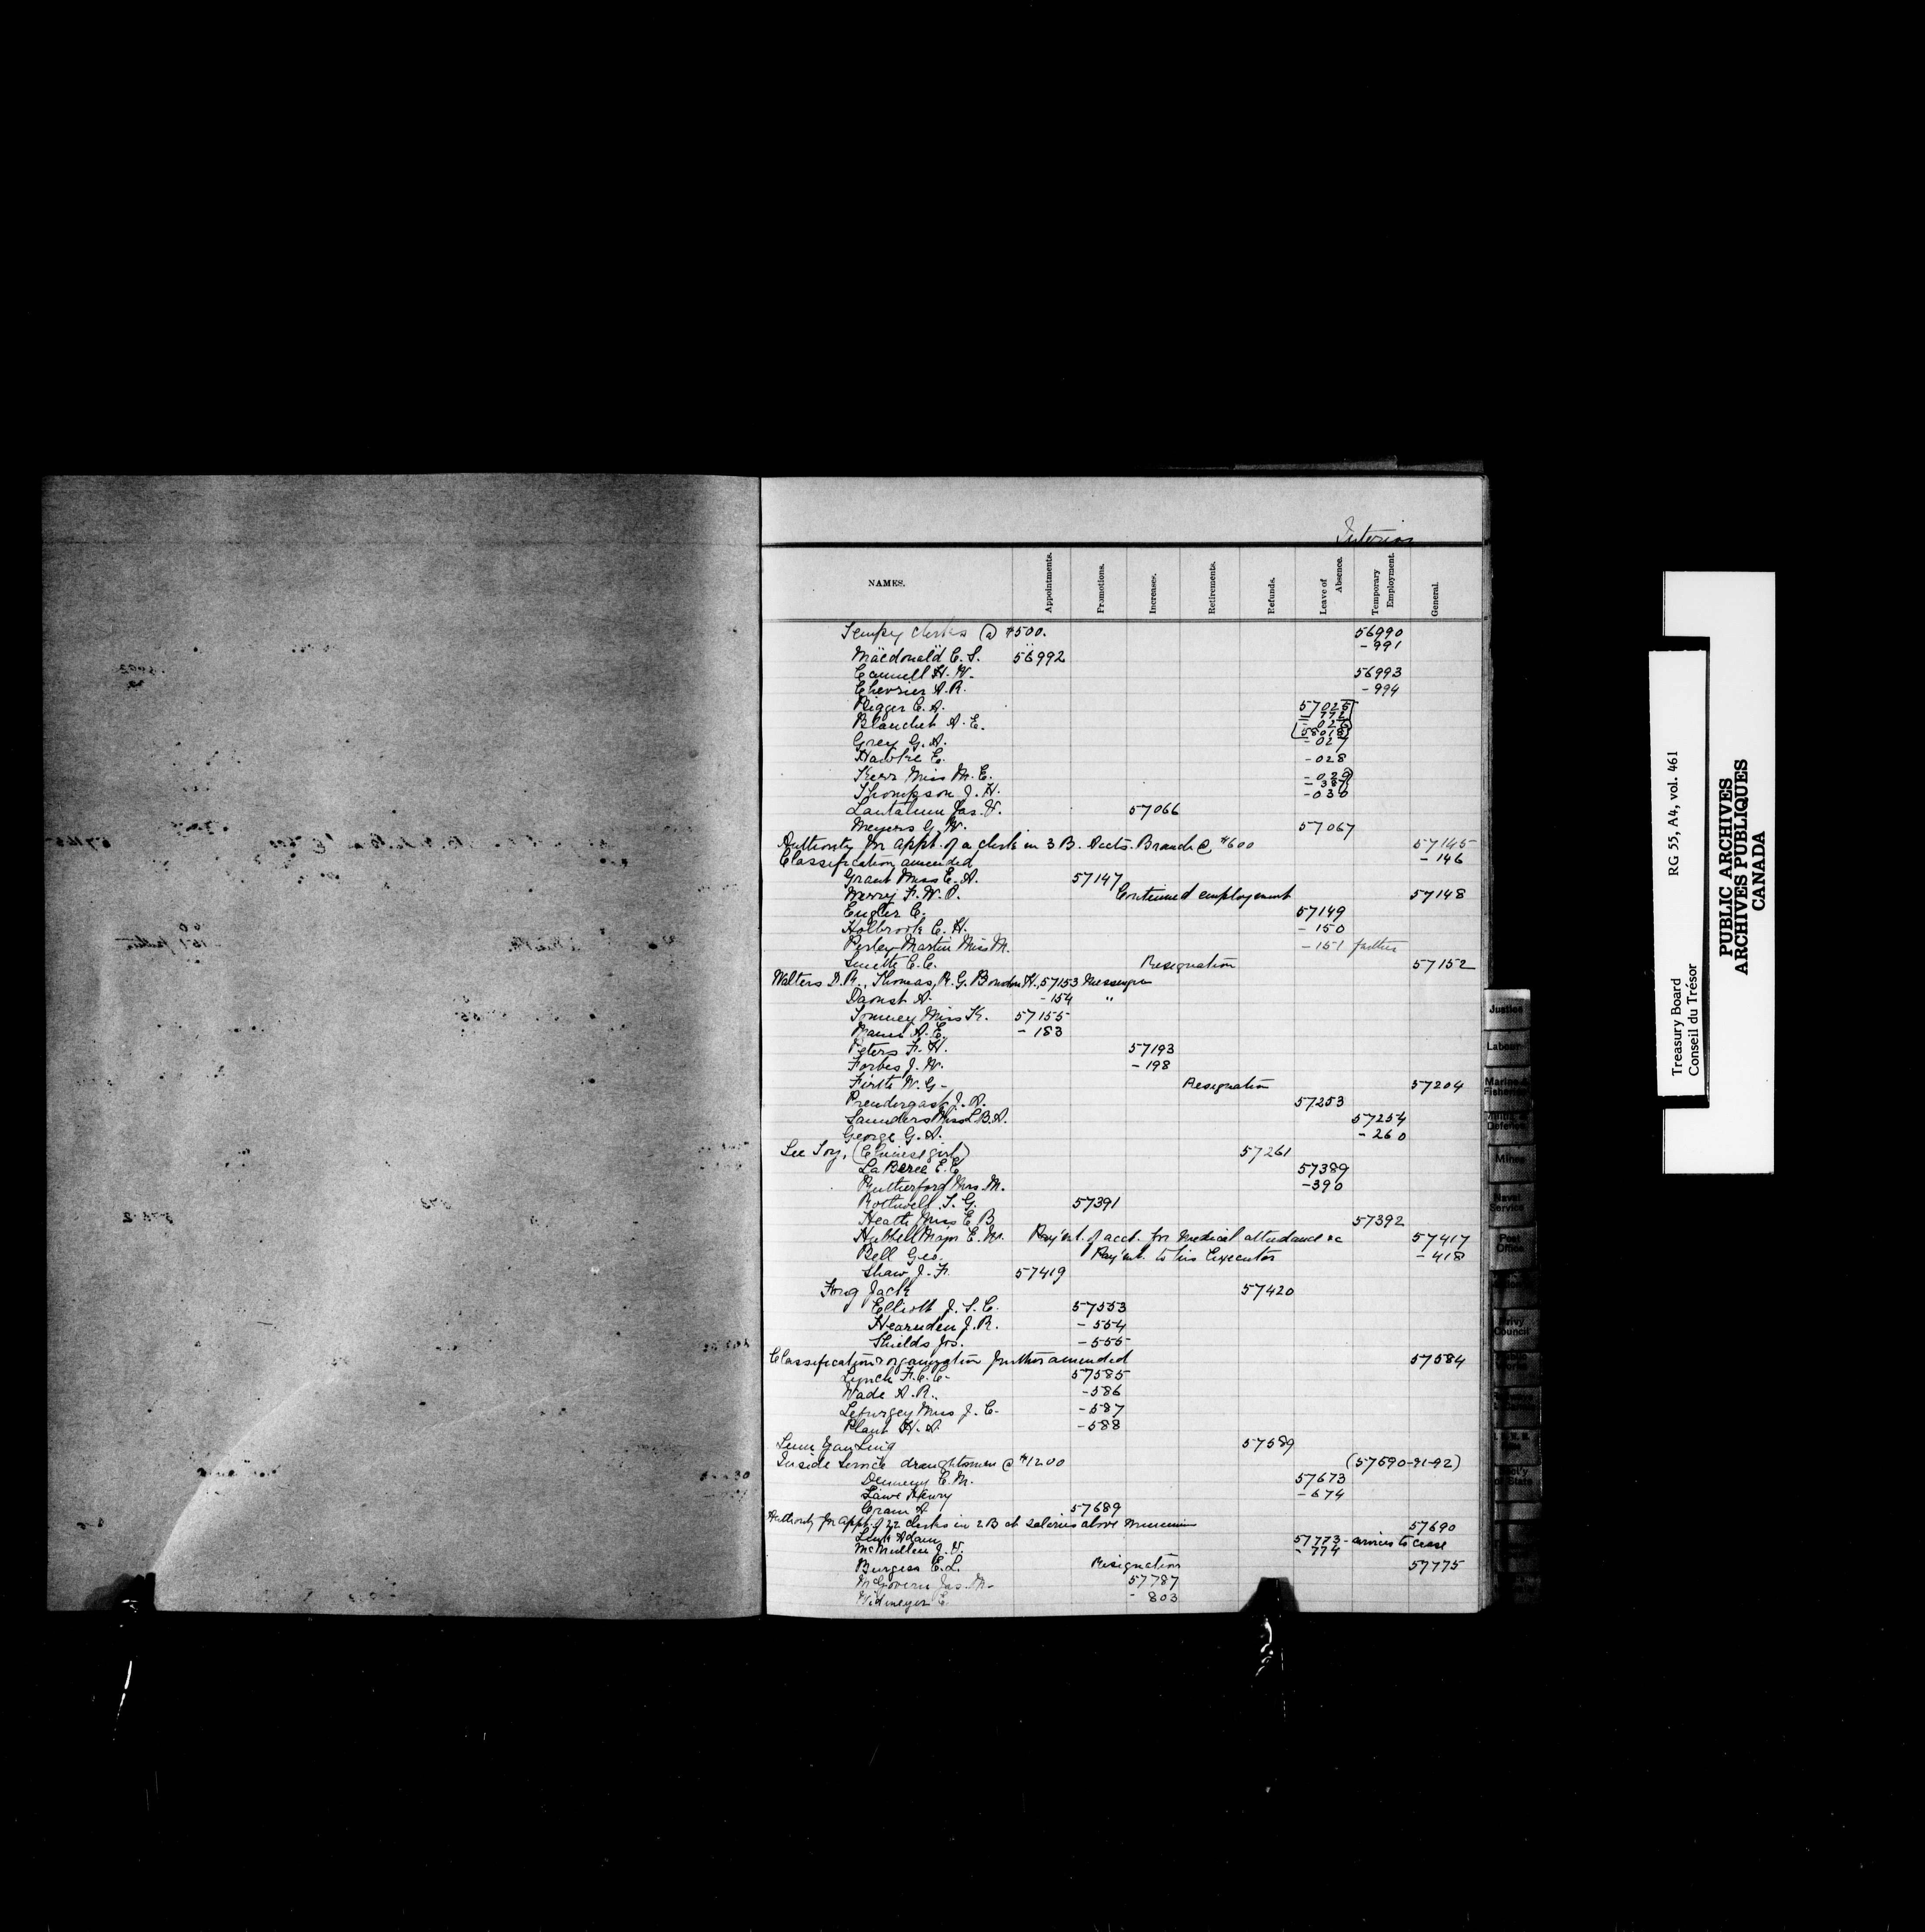 Interior
NAMES. Appointments. Promotions. Increases. Retirements. Refunds. Leave of Absence. Temporary Employment. General.
Tempy clerks @ $500. 56990
- 991
Macdonald C. S. 56992
Cannell H. W. 56993
Chevrier A. R. - 994
Bigger C. A. 57025
- 772
Blanchet A. E. - 026
58018
Grey G. A. - 027
Hawke E. - 028
Kerr Miss M. E. - 029
- 387
Thompson J. H. - 030
Lantalum Jas. V. 57066
Meyers G. W. 57067
Authority for appt. of a clerk in 3 B. Accts. Branch @ $600 57145
Classification amended - 146
Grant Miss E. A. 57147
Merry F. W. P. Continued employment 57148
Engler C. 57149
Holbrook C. H. - 150
Perley-Martin Miss M. - 151 further
Smith C. C. Resignation 57152
Walters D. R., Thomas, R. G. Bowdon H., 57153 Messenger
Daoust A. - 154 "
Tommey Miss K. 57155
Mann A. E. - 183
Peters F. H. 57193
Forbes J. W. - 198
Firth W. G - Resignation 57204
Prendergast J. A. 57253
Saunders Miss L. B. A. 57254
George G. A. - 260
Lee Toy, (Chinese girl) 57261
LaBeree E. E. 57389
Rutherford Mrs. M. - 390
Rothwell T. G. 57391
Heath Miss E B 57392
Hubbell Major E. W. Pay'mt. of acct. for medical attendance &c 57417
Bell Geo. Pay'mt. to his Executor - 418
Shaw J. F. 57419
Fong Jack 57420
Elliott J. S. C. 57553
Hearnden J. R. - 554
Shields Jos. - 555
Classification & organization further amended 57584
Lynch F. C. C. 57585
Wade A. R. - 586
Lefurgey Miss J. C. - 587
Plant H. A. - 588
Lum Yan Ling 57589
Inside Service draughtsmen @ $1200 (57590-91-92)
Dennery C. M. 57673
Lawe Henry - 674
Crain A 57689
Authority for appt. of 22 clerks in 2 B at salaries above minimum 57690
Link Adam 57773 - services to cease
McMullen J. V. - 774
Burgess E. L. Resignation 57775
McGovern Jas. M. 57787
Widmeyer E. - 803
Justice
Labour
Marine & Fisheries
Militia & Defence
Mines
Naval Service
Post Office
Privy Council
Treasury Board
Conseil du Trésor
RG 55, A4, vol. 461
PUBLIC ARCHIVES
ARCHIVES PUBLIQUES
CANADA